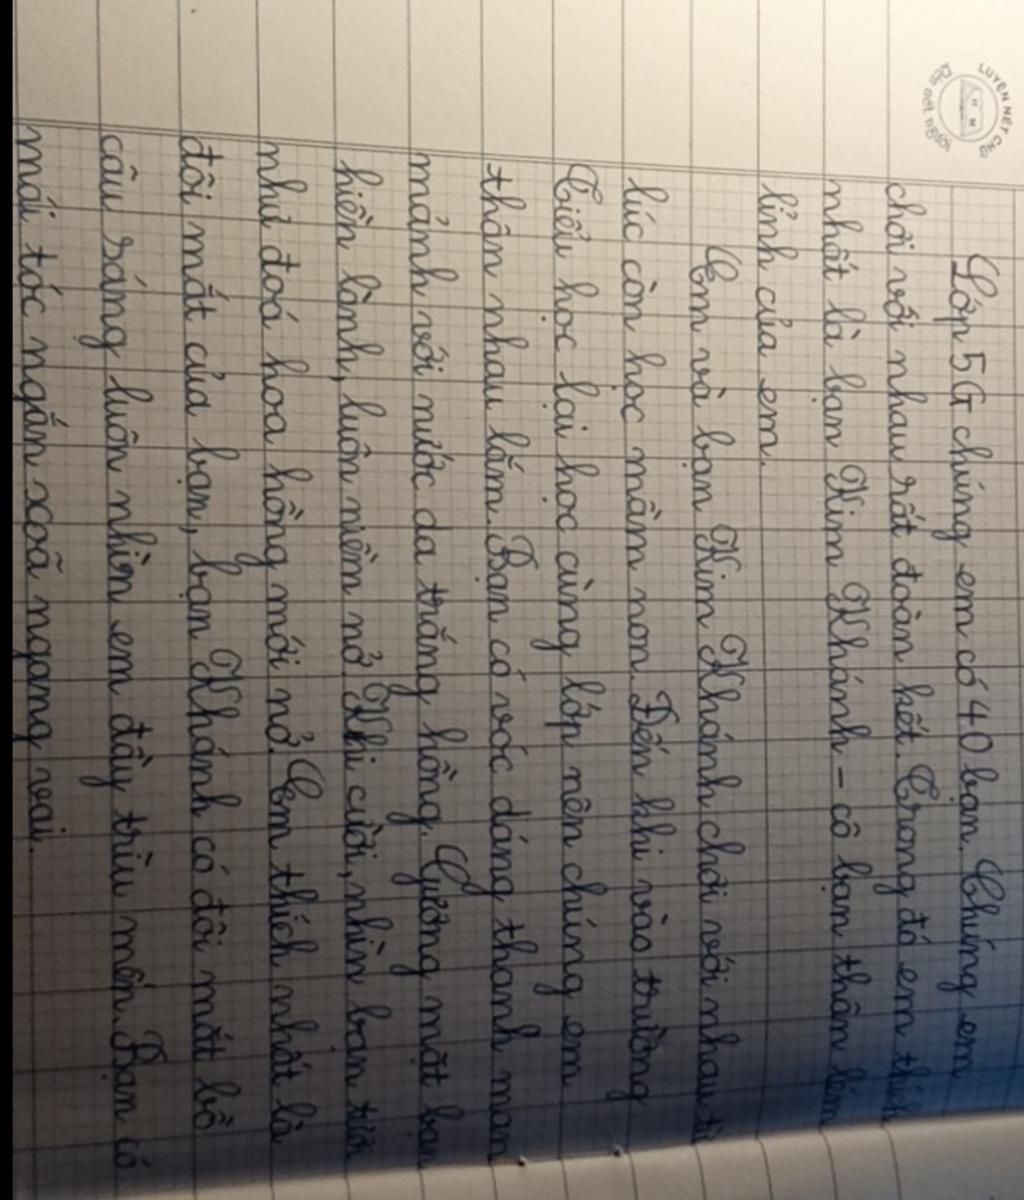 LUYỆN NÉT CHỮ
H M
Lớp 5G chúng em có 40 bạn. Chúng em
chơi với nhau rất đoàn kết. Trong đó em thích
nhất là bạn Kim Khánh - cô bạn thân lém
lỉnh của em.
Em và bạn Kim Khánh chơi với nhau từ
lúc còn học mầm non. Đến khi vào trường
Tiểu học lại học cùng lớp nên chúng em
thân nhau lắm. Bạn có vóc dáng thanh man
mảnh với nước da trắng hồng. Gương mặt bạn
hiền lành, luôn niềm nở. Khi cười, nhìn bạn tươi
như đoá hoa hồng mới nở. Em thích nhất là
đôi mắt của bạn, bạn Khánh có đôi mắt bồ
câu sáng luôn nhìn em đầy trìu mến. Bạn có
mái tóc ngắn xoã ngang vai.